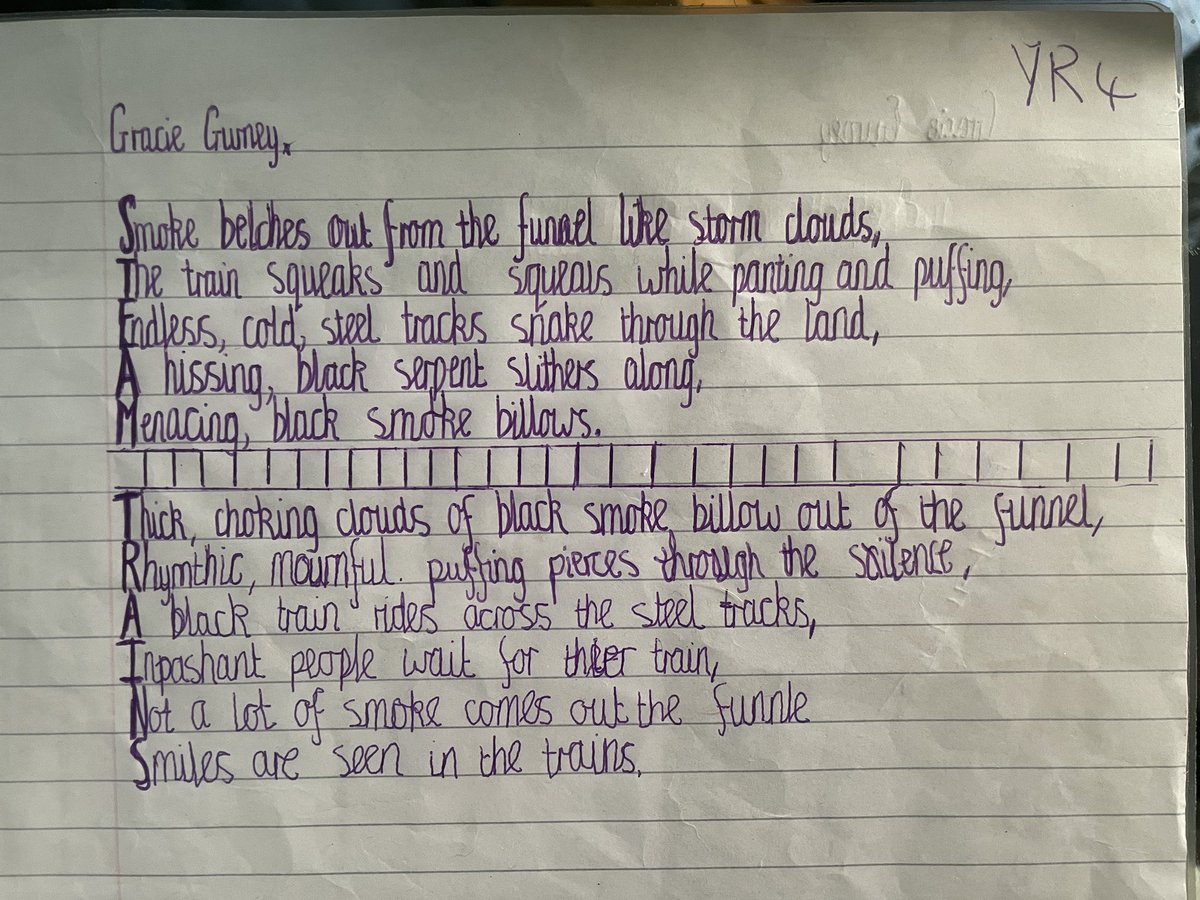 YR 4
Gracie Gurney x
Smoke belches out from the funnel like storm clouds,
The train squeaks and squeals while panting and puffing,
Endless, cold, steel tracks snake through the land,
A hissing, black serpent slithers along,
Menacing, black smoke billows.
Thick, choking clouds of black smoke billow out of the funnel,
Rhymthic, mournful. puffing pierces through the silence,
A black train rides across the steel tracks,
Inpashant people wait for their train,
Not a lot of smoke comes out the funnle
Smiles are seen in the trains.